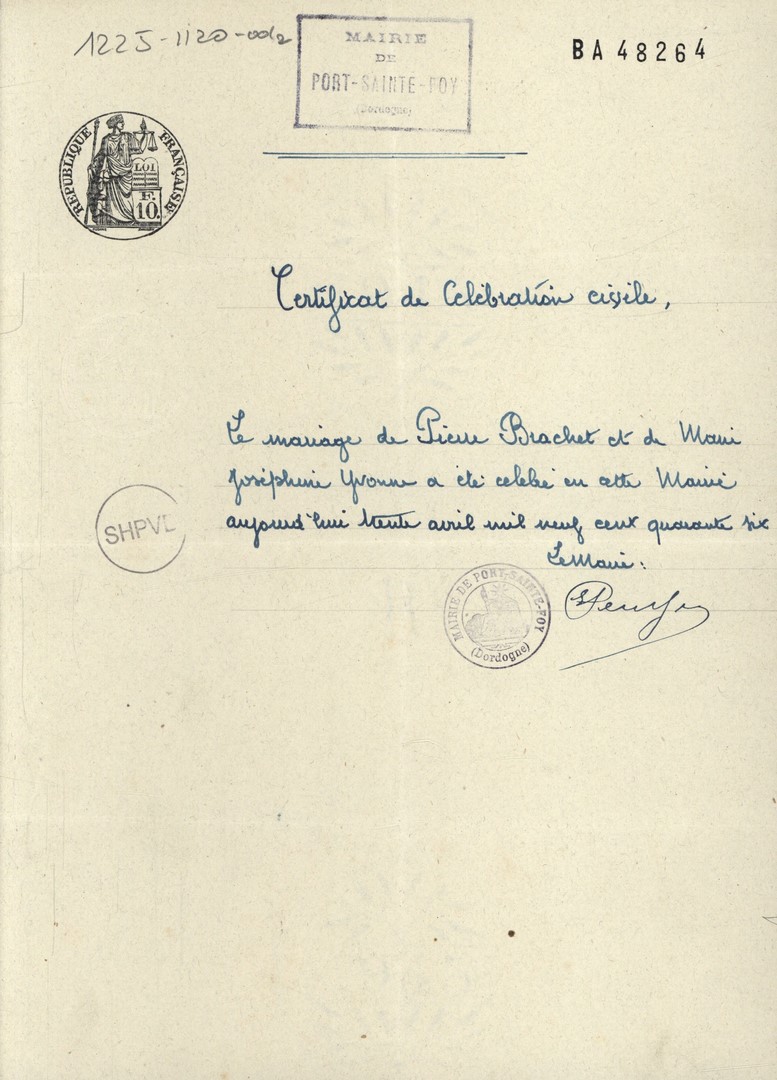 1225-1120-002
MAIRIE
DE
PORT-SAINTE-FOY
(Dordogne)
BA 48264
REPUBLIQUE FRANÇAISE
LOI
F.
10.
Certificat de Célébration civile,
Le mariage de Pierre Brachet et de Marie
Joséphine Yvonne a été célébré en cette Mairie
aujourd'hui trente avril mil neuf cent quarante six
Le Maire:
SHPVL
MAIRIE DE PORT-SAINTE-FOY
(Dordogne)